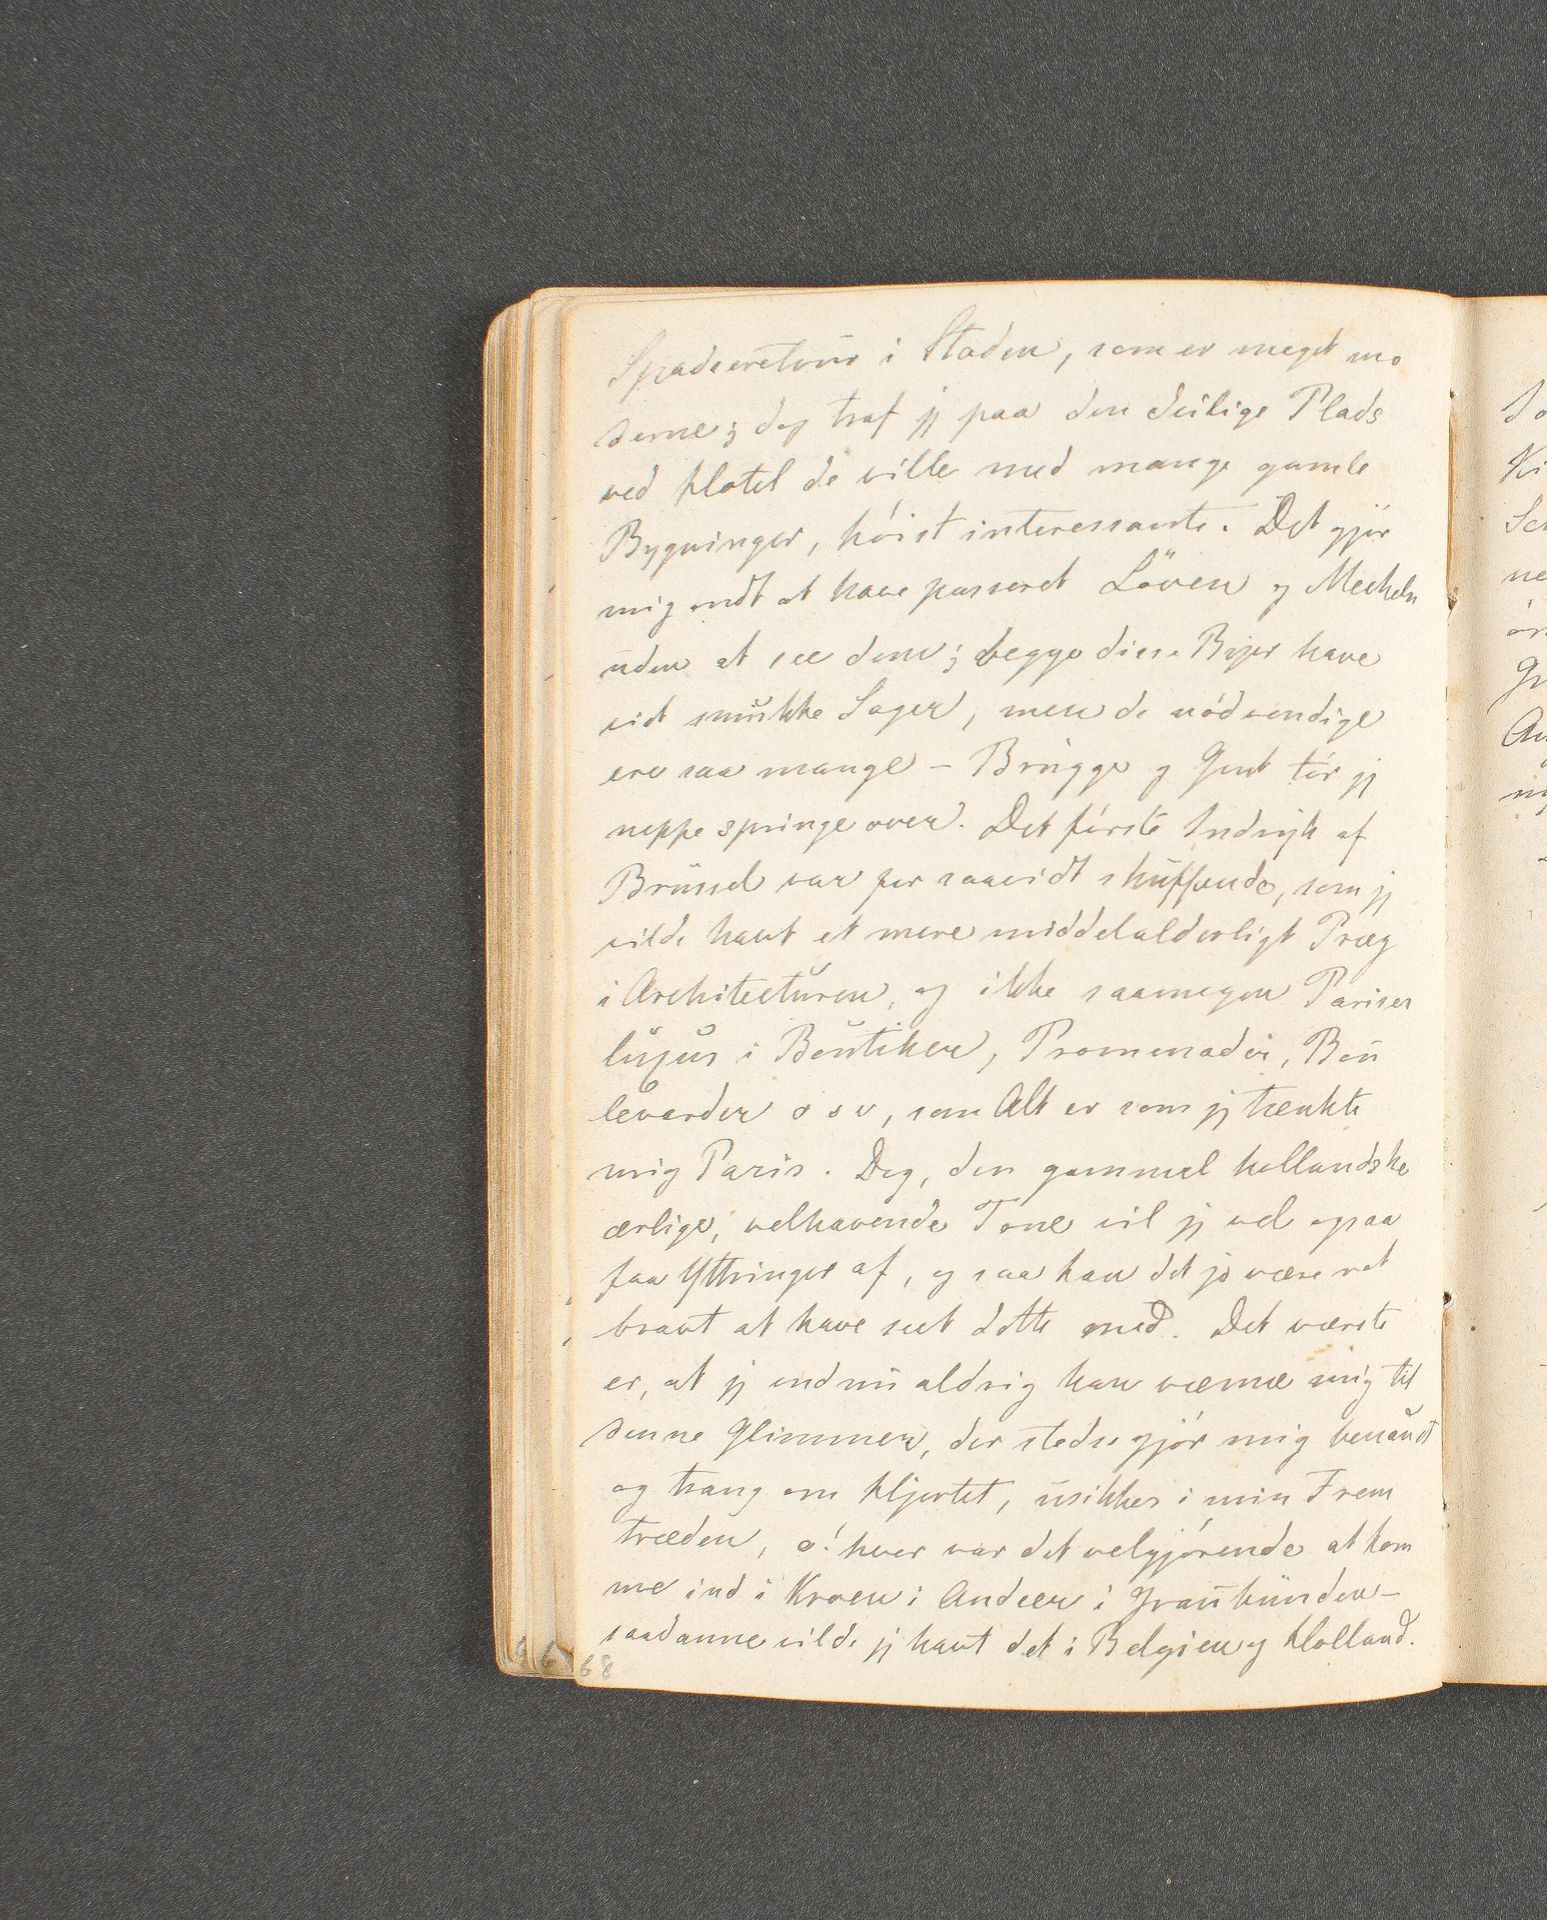 Spadseretour i Staden, som er meget mo
derne; dog traf jg paa den deilige Plads
ved Hotel de ville med mange gamle
Bygninger, höist interessante. Det gjör
mig ondt at have passeret Löven og Mecheln
uden at see dem; begge disse Byer have
vist smukke Sager, men de nödvendige
ere saa mange – Brügge og Gent tör jg
neppe springe over. Det förste Indryk af
Brüssel var for saavidt skuffende, som jg
vilde havt et mere middelalderligt Præg
i Architecturen, og ikke saamegen Pariser
luxus i Boutiker, Promenader, Bou
levarder o s v, som Alt er som jg tænkte
mig Paris. Dog, den gammel hollandske
ærlige, velhavende Tone vil jg vel ogsaa
faa Yttringer af, og saa kan det jo være ret
bravt at have seet dette med. Det værste
er, at jg endnu aldrig kan vænne mig til
denne Glimmer, der stedse gjör mig benauet
og trang om Hjertet, usikker i min Frem
træden, o! hvor var det velgjörende at kom
me ind i Kroen i Andeer i Graubünden –
saadanne vilde jg havt det i Belgien og Holland.
68